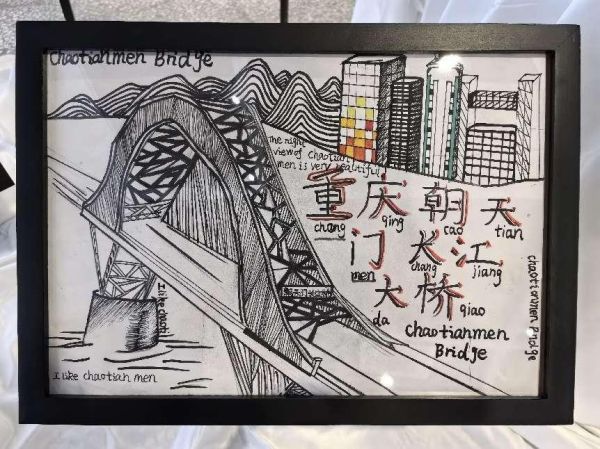 Chaotianmen Bridge
The night
view of Chaotian
men is very beautiful
重庆朝天
chang qing cao tian
门长江
men chang jiang
大桥
da qiao
Chaotianmen
Bridge
chaotianmen Bridge
I like
I like chaotian men